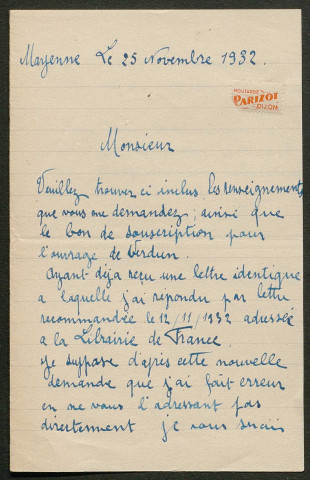 Mayenne Le 25 Novembre 1932.
MOUTARDE
PARIZOT
DIJON
Monsieur
Veuillez trouver ci inclus les renseignements
que vous me demandez ; ainsi que
le bon de souscription pour
l'ouvrage de Verdun.
Ayant déja reçu une lettre identique
a laquelle j'ai repondu par lettre
recommandée le 12/11/1932 adressée
a la Librairie de France.
Je suppose d'après cette nouvelle
demande que j'ai fait erreur
en ne vous l'adressant pas
directement je vous serais